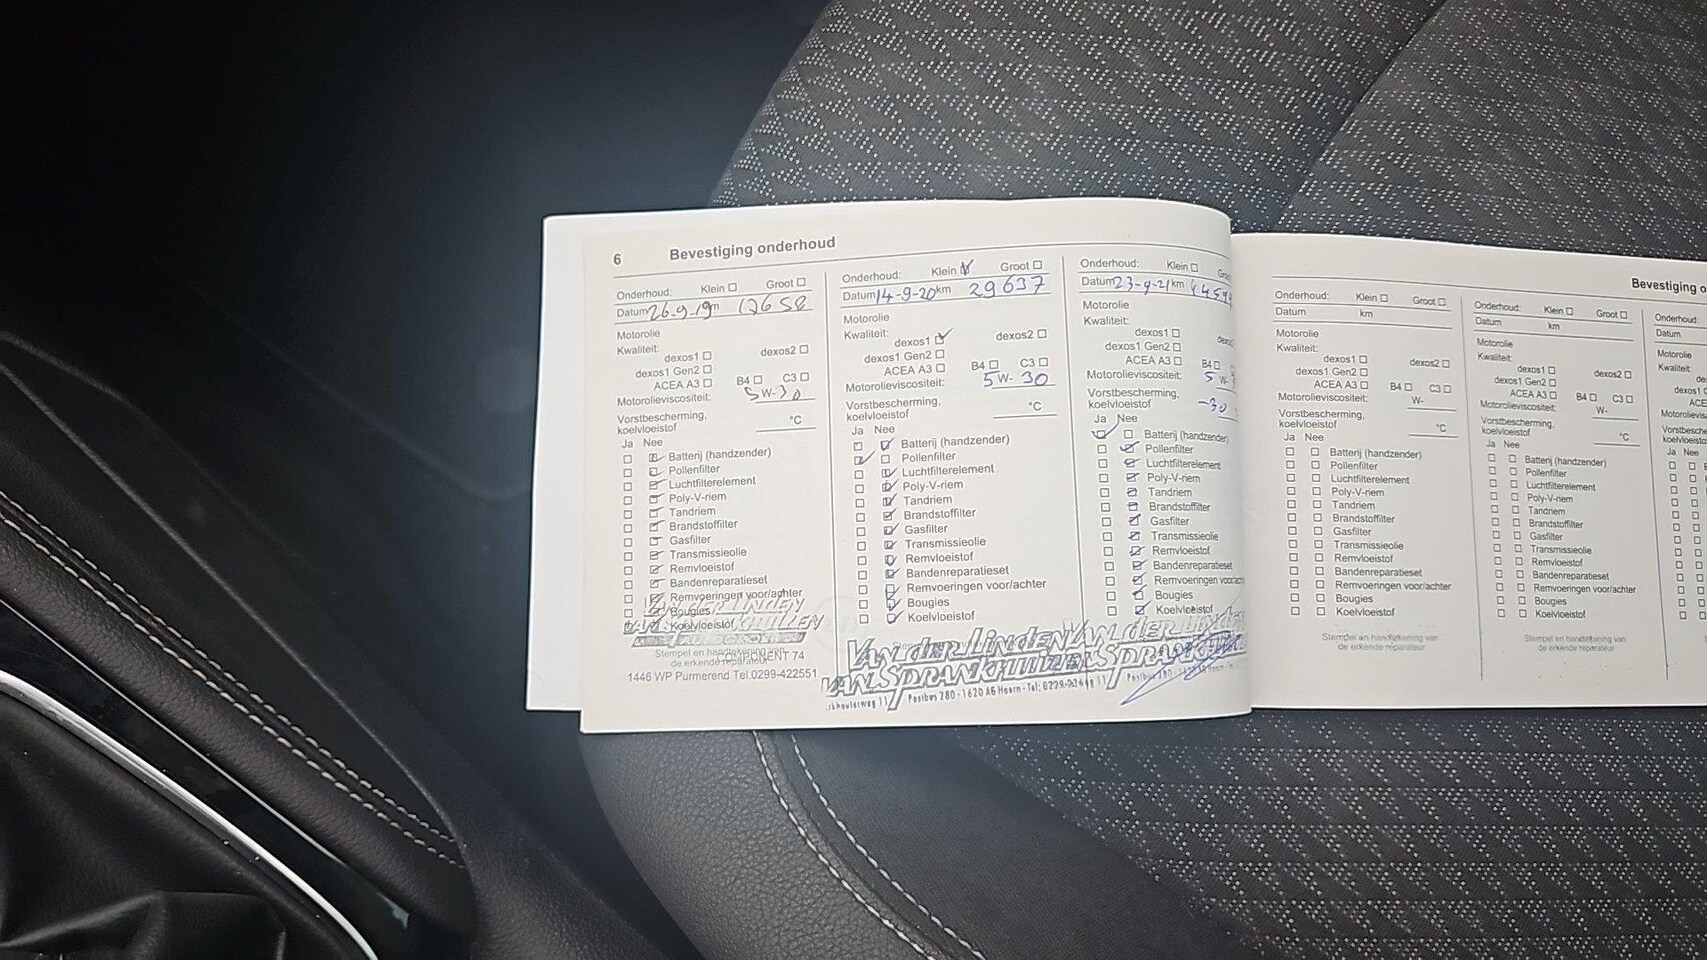 6 Bevestiging onderhoud
Onderhoud: Klein Groot
Datum 26-9-19 km 17658
Motorolie
Kwaliteit:
dexos1 dexos2
dexos1 Gen2
ACEA A3 B4 C3
Motorolieviscositeit: 5 W-30
Vorstbescherming,
koelvloeistof °C
Ja Nee
Batterij (handzender)
Pollenfilter
Luchtfilterelement
Poly-V-riem
Tandriem
Brandstoffilter
Gasfilter
Transmissieolie
Remvloeistof
Bandenreparatieset
Remvoeringen voor/achter
Bougies
Koelvloeistof
VAN DER LINDEN
VAN SPRANKHUIZEN
Stempel en handtekening van
de erkende reparateur
COMPONENT 74
1446 WP Purmerend Tel.0299-422551
Onderhoud: Klein Groot
Datum 14-9-20 km 29637
Motorolie
Kwaliteit:
dexos1 dexos2
dexos1 Gen2
ACEA A3 B4 C3
Motorolieviscositeit: 5 W- 30
Vorstbescherming,
koelvloeistof °C
Ja Nee
Batterij (handzender)
Pollenfilter
Luchtfilterelement
Poly-V-riem
Tandriem
Brandstoffilter
Gasfilter
Transmissieolie
Remvloeistof
Bandenreparatieset
Remvoeringen voor/achter
Bougies
Koelvloeistof
VAN DER LINDEN
VAN SPRANKHUIZEN
Postbus 280 - 1620 AG Hoorn - Tel:
Onderhoud: Klein
Datum 23-9-21 km
Motorolie
Kwaliteit:
dexos1
dexos1 Gen2
ACEA A3 B4
Motorolieviscositeit: 5 W-
Vorstbescherming,
koelvloeistof -30
Ja Nee
Batterij (handzender)
Pollenfilter
Luchtfilterelement
Poly-V-riem
Tandriem
Brandstoffilter
Gasfilter
Transmissieolie
Remvloeistof
Bandenreparatieset
Remvoeringen
Bougies
Koelvloeistof
VAN DER LINDEN
Bevestiging
Onderhoud: Klein Groot
Datum km
Motorolie
Kwaliteit:
dexos1 dexos2
dexos1 Gen2
ACEA A3 B4 C3
Motorolieviscositeit: W-
Vorstbescherming,
koelvloeistof °C
Ja Nee
Batterij (handzender)
Pollenfilter
Luchtfilterelement
Poly-V-riem
Tandriem
Brandstoffilter
Gasfilter
Transmissieolie
Remvloeistof
Bandenreparatieset
Remvoeringen voor/achter
Bougies
Koelvloeistof
Stempel en handtekening van
de erkende reparateur
Onderhoud: Klein Groot
Datum km
Motorolie
Kwaliteit:
dexos1 dexos2
dexos1 Gen2
ACEA A3 B4 C3
Motorolieviscositeit: W-
Vorstbescherming,
koelvloeistof °C
Ja Nee
Batterij (handzender)
Pollenfilter
Luchtfilterelement
Poly-V-riem
Tandriem
Brandstoffilter
Gasfilter
Transmissieolie
Remvloeistof
Bandenreparatieset
Remvoeringen voor/achter
Bougies
Koelvloeistof
Stempel en handtekening van
de erkende reparateur
Onderhoud:
Datum
Motorolie
Kwaliteit:
Ja Nee